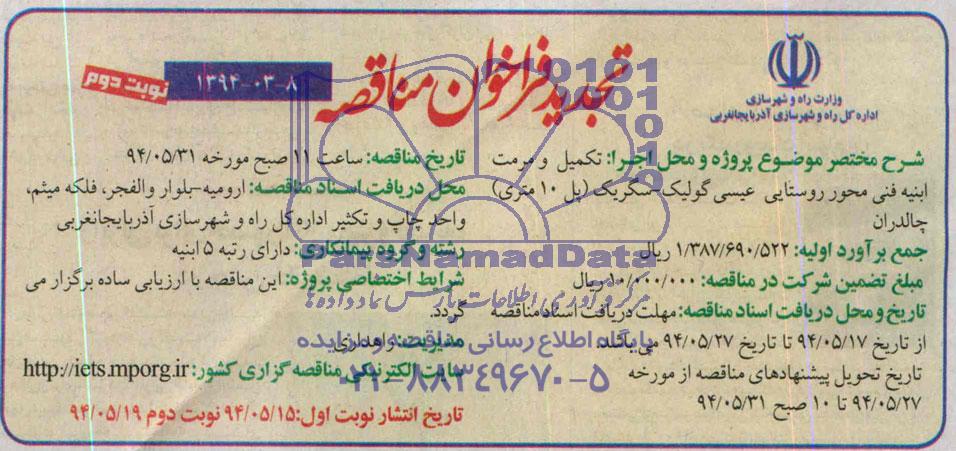 وزارت راه و شهرسازی
اداره کل راه و شهرسازی آذربایجانغربی
تجدید فراخوان مناقصه
۱۳۹۴-۰۳-۸
نوبت دوم
شرح مختصر موضوع پروژه و محل اجرا: تکمیل و مرمت
ابنیه فنی محور روستایی عیسی گولیک-سگریک (پل ۱۰ متری)
چالدران
جمع برآورد اولیه: ۱/۳۸۷/۶۹۰/۵۲۲ ریال
مبلغ تضمین شرکت در مناقصه: ۱۰/۰۰۰/۰۰۰ ریال
تاریخ و محل دریافت اسناد مناقصه: مهلت دریافت اسناد مناقصه
از تاریخ ۹۴/۰۵/۱۷ تا تاریخ ۹۴/۰۵/۲۷ می باشد.
تاریخ تحویل پیشنهادهای مناقصه از مورخه
۹۴/۰۵/۲۷ تا ۱۰ صبح ۹۴/۰۵/۳۱
تاریخ مناقصه: ساعت ۱۱ صبح مورخه ۹۴/۰۵/۳۱
محل دریافت اسناد مناقصه: ارومیه-بلوار والفجر، فلکه میثم،
واحد چاپ و تکثیر اداره کل راه و شهرسازی آذربایجانغربی
رشته و گروه پیمانکاری: دارای رتبه ۵ ابنیه
شرایط اختصاصی پروژه: این مناقصه با ارزیابی ساده برگزار می
گردد.
مدیریت: راهداری
سایت الکترونیکی مناقصه گزاری کشور: http://iets.mporg.ir
تاریخ انتشار نوبت اول: ۹۴/۰۵/۱۵ نوبت دوم ۹۴/۰۵/۱۹
ParsNamadData
مرکز فرآوری اطلاعات پارس نماد داده ها
پایگاه اطلاع رسانی مناقصه و مزایده
۰۲۱-۸۸۳۴۹۶۷۰-۵